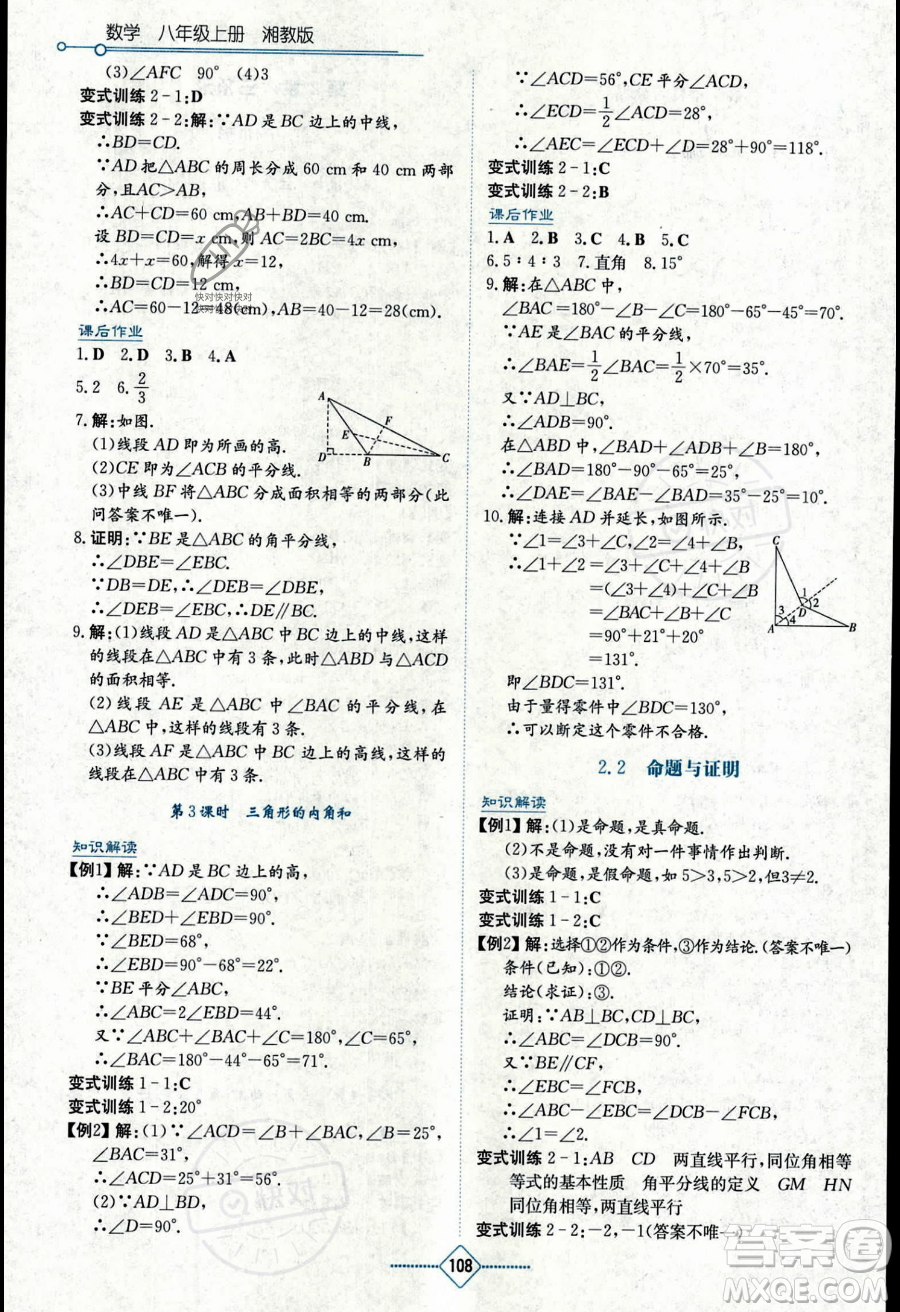 数学 八年级上册 湘教版
(3)∠AFC 90° (4)3
变式训练2-1:D
变式训练2-2:解:∵AD是BC边上的中线,
∴BD=CD.
∵AD把△ABC的周长分成60 cm和40 cm两部
分,且AC>AB,
∴AC+CD=60 cm,AB+BD=40 cm.
设BD=CD=x cm,则AC=2BC=4x cm,
∴4x+x=60,解得x=12,
∴BD=CD=12 cm,
∴AC=60-12=48(cm),AB=40-12=28(cm).
快对快对快对
课后作业
1.D 2.D 3.B 4.A
5.2 6.2/3
7.解:如图.
(1)线段AD即为所画的高.
(2)CE即为∠ACB的平分线.
(3)中线BF将△ABC分成面积相等的两部分(此
问答案不唯一).
A
F
E
D
B
C
8.证明:∵BE是△ABC的角平分线,
∴∠DBE=∠EBC.
∵DB=DE,∴∠DEB=∠DBE,
∴∠DEB=∠EBC,∴DE∥BC.
9.解:(1)线段AD是△ABC中BC边上的中线,这样
的线段在△ABC中有3条,此时△ABD与△ACD
的面积相等.
(2)线段AE是△ABC中∠BAC的平分线,在
△ABC中,这样的线段有3条.
(3)线段AF是△ABC中BC边上的高线,这样的
线段在△ABC中有3条.
第3课时 三角形的内角和
知识解读
【例1】解:∵AD是BC边上的高,
∴∠ADB=∠ADC=90°,
∴∠BED+∠EBD=90°.
∵∠BED=68°,
∴∠EBD=90°-68°=22°.
∵BE平分∠ABC,
∴∠ABC=2∠EBD=44°.
又∵∠ABC+∠BAC+∠C=180°,∠C=65°,
∴∠BAC=180°-44°-65°=71°.
变式训练1-1:C
变式训练1-2:20°
【例2】解:(1)∵∠ACD=∠B+∠BAC,∠B=25°,
∠BAC=31°,
∴∠ACD=25°+31°=56°.
(2)∵AD⊥BD,
∴∠D=90°.
∵∠ACD=56°,CE平分∠ACD,
∴∠ECD=1/2∠ACD=28°,
∴∠AEC=∠ECD+∠D=28°+90°=118°.
变式训练2-1:C
变式训练2-2:B
课后作业
1.A 2.B 3.C 4.B 5.C
6.5∶4∶3 7.直角 8.15°
9.解:在△ABC中,
∠BAC=180°-∠B-∠C=180°-65°-45°=70°.
∵AE是∠BAC的平分线,
∴∠BAE=1/2∠BAC=1/2×70°=35°.
又∵AD⊥BC,
∴∠ADB=90°.
在△ABD中,∠BAD+∠ADB+∠B=180°,
∴∠BAD=180°-90°-65°=25°,
∴∠DAE=∠BAE-∠BAD=35°-25°=10°.
10.解:连接AD并延长,如图所示.
∵∠1=∠3+∠C,∠2=∠4+∠B,
∴∠1+∠2=∠3+∠C+∠4+∠B
=(∠3+∠4)+∠C+∠B
=∠BAC+∠B+∠C
=90°+21°+20°
=131°.
即∠BDC=131°.
由于量得零件中∠BDC=130°,
∴可以断定这个零件不合格.
C
1
2
D
3
4
A
B
2.2 命题与证明
知识解读
【例1】解:(1)是命题,是真命题.
(2)不是命题,没有对一件事情作出判断.
(3)是命题,是假命题,如5>3,5>2,但3≠2.
变式训练1-1:C
变式训练1-2:C
【例2】解:选择①②作为条件,③作为结论.(答案不唯一)
条件(已知):①②.
结论(求证):③.
证明:∵AB⊥BC,CD⊥BC,
∴∠ABC=∠DCB=90°.
又∵BE∥CF,
∴∠EBC=∠FCB,
∴∠ABC-∠EBC=∠DCB-∠FCB,
∴∠1=∠2.
变式训练2-1:AB CD 两直线平行,同位角相等
等式的基本性质 角平分线的定义 GM HN
同位角相等,两直线平行
变式训练2-2:-2,-1(答案不唯一)
108
答案圈
MXQE.COM